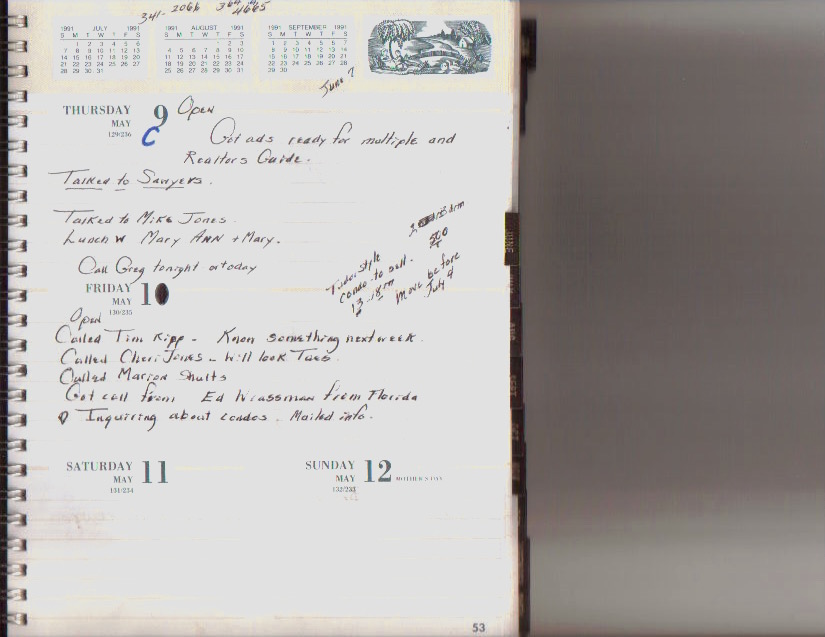 341-2066 364-4665
1991 JULY 1991
S M T W T F S
1 2 3 4 5 6
7 8 9 10 11 12 13
14 15 16 17 18 19 20
21 22 23 24 25 26 27
28 29 30 31
1991 AUGUST 1991
S M T W T F S
1 2 3
4 5 6 7 8 9 10
11 12 13 14 15 16 17
18 19 20 21 22 23 24
25 26 27 28 29 30 31
1991 SEPTEMBER 1991
S M T W T F S
1 2 3 4 5 6 7
8 9 10 11 12 13 14
15 16 17 18 19 20 21
22 23 24 25 26 27 28
29 30
June 7
THURSDAY 9 Open
MAY
129/236 C
Got ads ready for multiple and
Realtors Guide.
Talked to Sawyers.
Talked to Mike Jones.
Lunch W Mary Ann + Mary.
Call Greg tonight or today
3 Bdrm
Tudor Style
Condo to sell.
Move before
July 4
FRIDAY 10
MAY
130/235
Open
Called Tim Kipp - Know something next week.
Called Cheri Jones - Will look Tues.
Called Marion Shults
Got call from Ed Wassman from Florida
Inquiring about condos. Mailed info.
SATURDAY 11
MAY
131/234
SUNDAY 12
MAY MOTHER'S DAY
132/233
JUNE
53